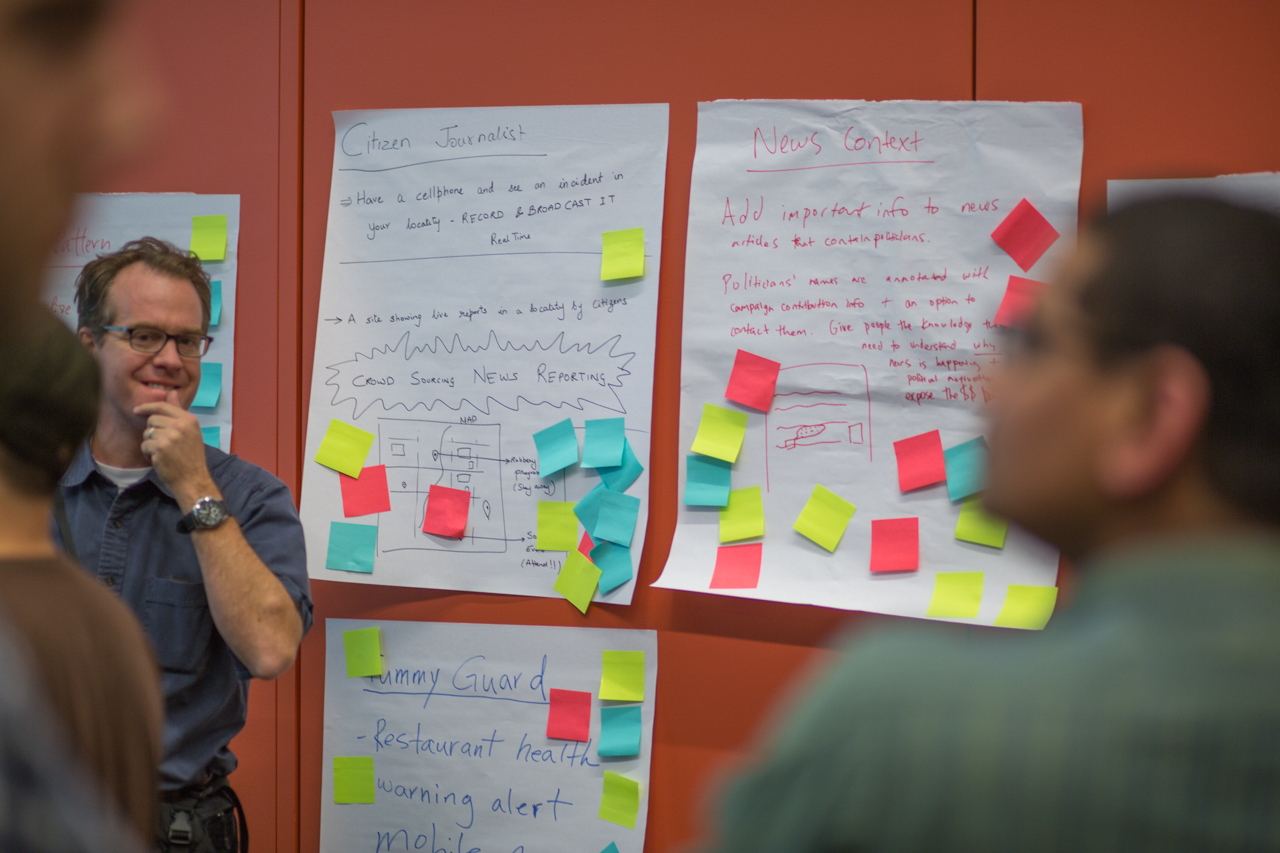 attern
Citizen Journalist
⇒ Have a cellphone and see an incident in
your locality - RECORD & BROADCAST IT
Real Time
→ A site showing live reports in a locality by citizens
CROWD SOURCING NEWS REPORTING
MAP
Robbery
(Stay away)
(Attend!!)
News Context
Add important info to news
articles that contain politicians.
Politicians' names are annotated with
campaign contribution info + an option to
contact them. Give people the knowledge
need to understand why
news is happening +
political
expose the $$
Tummy Guard
- Restaurant health
warning alert
mobile